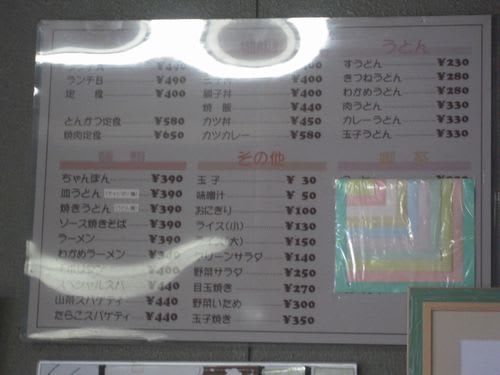 ランチA ¥490
ランチB ¥490
定 食 ¥400
とんかつ定食 ¥580
焼肉定食 ¥650
¥400
親子丼 ¥400
焼 飯 ¥440
カツ丼 ¥450
カツカレー ¥580
うどん
すうどん ¥230
きつねうどん ¥280
わかめうどん ¥280
肉うどん ¥330
カレーうどん ¥330
玉子うどん ¥330
麺 類
ちゃんぽん ¥390
皿うどん ¥390
焼きうどん ¥390
ソース焼きそば ¥390
ラーメン ¥390
わかめラーメン ¥340
ナポリタン ¥400
スペシャルスパ ¥440
山菜スパゲティ ¥440
たらこスパゲティ ¥440
その他
玉 子 ¥ 30
味噌汁 ¥ 50
おにぎり ¥100
ライス(小) ¥130
ライス(大) ¥150
グリーンサラダ ¥140
野菜サラダ ¥250
目玉焼き ¥270
野菜いため ¥300
玉子焼き ¥350